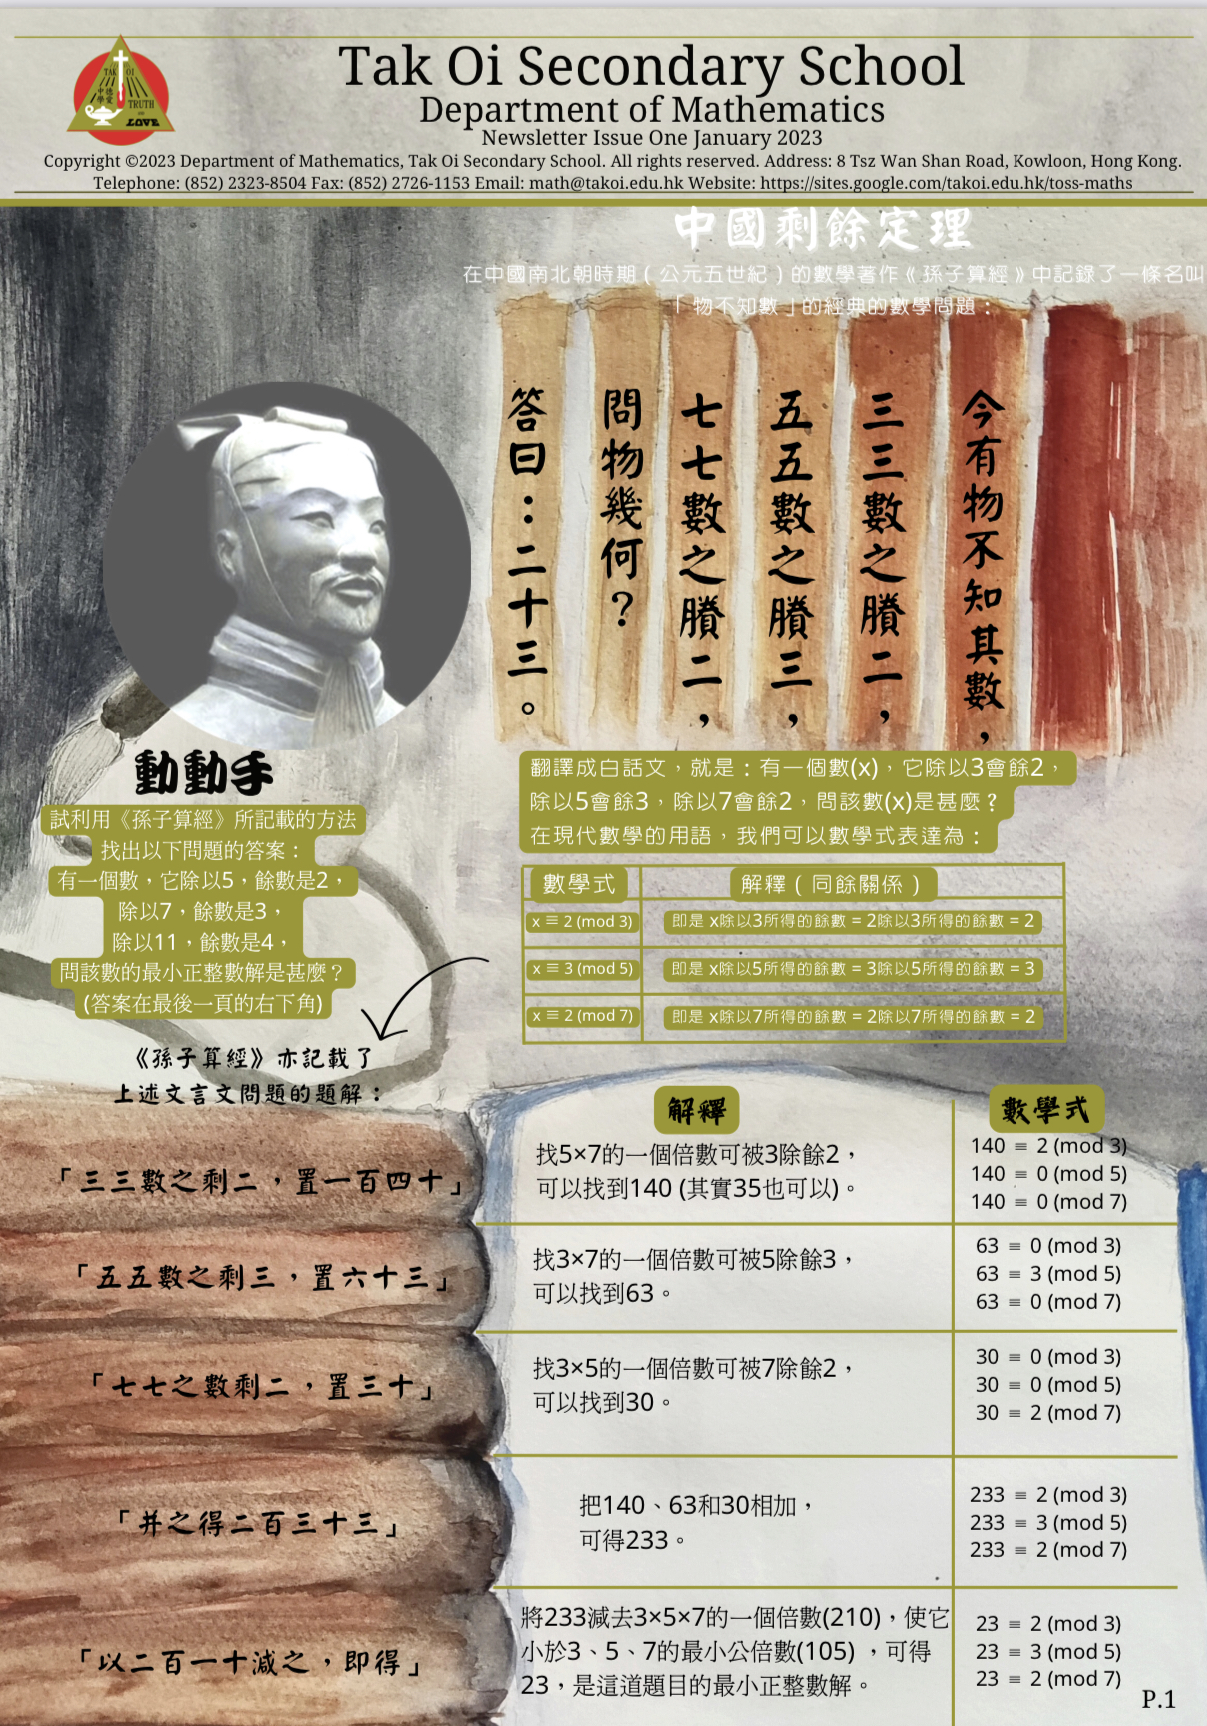 Tak Oi Secondary School
Department of Mathematics
Newsletter Issue One January 2023
Copyright ©2023 Department of Mathematics, Tak Oi Secondary School. All rights reserved. Address: 8 Tsz Wan Shan Road, Kowloon, Hong Kong.
Telephone: (852) 2323-8504 Fax: (852) 2726-1153 Email: math@takoi.edu.hk Website: https://sites.google.com/takoi.edu.hk/toss-maths
TAK OI
中德
學愛
TRUTH
IN
LOVE
中國剩餘定理
在中國南北朝時期(公元五世紀)的數學著作《孫子算經》中記錄了一條名叫
「物不知數」的經典的數學問題：
今有物不知其數，
三三數之賸二，
五五數之賸三，
七七數之賸二，
問物幾何？
答曰：二十三。
翻譯成白話文，就是：有一個數(x)，它除以3會餘2，
除以5會餘3，除以7會餘2，問該數(x)是甚麼？
在現代數學的用語，我們可以數學式表達為：
數學式 解釋(同餘關係)
x ≡ 2 (mod 3) 即是 x除以3所得的餘數 = 2除以3所得的餘數 = 2
x ≡ 3 (mod 5) 即是 x除以5所得的餘數 = 3除以5所得的餘數 = 3
x ≡ 2 (mod 7) 即是 x除以7所得的餘數 = 2除以7所得的餘數 = 2
動動手
試利用《孫子算經》所記載的方法
找出以下問題的答案：
有一個數，它除以5，餘數是2，
除以7，餘數是3，
除以11，餘數是4，
問該數的最小正整數解是甚麼？
(答案在最後一頁的右下角)
《孫子算經》亦記載了
上述文言文問題的題解：
解釋 數學式
「三三數之剩二，置一百四十」
找5×7的一個倍數可被3除餘2，
可以找到140 (其實35也可以)。
140 ≡ 2 (mod 3)
140 ≡ 0 (mod 5)
140 ≡ 0 (mod 7)
「五五數之剩三，置六十三」
找3×7的一個倍數可被5除餘3，
可以找到63。
63 ≡ 0 (mod 3)
63 ≡ 3 (mod 5)
63 ≡ 0 (mod 7)
「七七之數剩二，置三十」
找3×5的一個倍數可被7除餘2，
可以找到30。
30 ≡ 0 (mod 3)
30 ≡ 0 (mod 5)
30 ≡ 2 (mod 7)
「并之得二百三十三」
把140、63和30相加，
可得233。
233 ≡ 2 (mod 3)
233 ≡ 3 (mod 5)
233 ≡ 2 (mod 7)
「以二百一十減之，即得」
將233減去3×5×7的一個倍數(210)，使它
小於3、5、7的最小公倍數(105)，可得
23，是這道題目的最小正整數解。
23 ≡ 2 (mod 3)
23 ≡ 3 (mod 5)
23 ≡ 2 (mod 7)
P.1